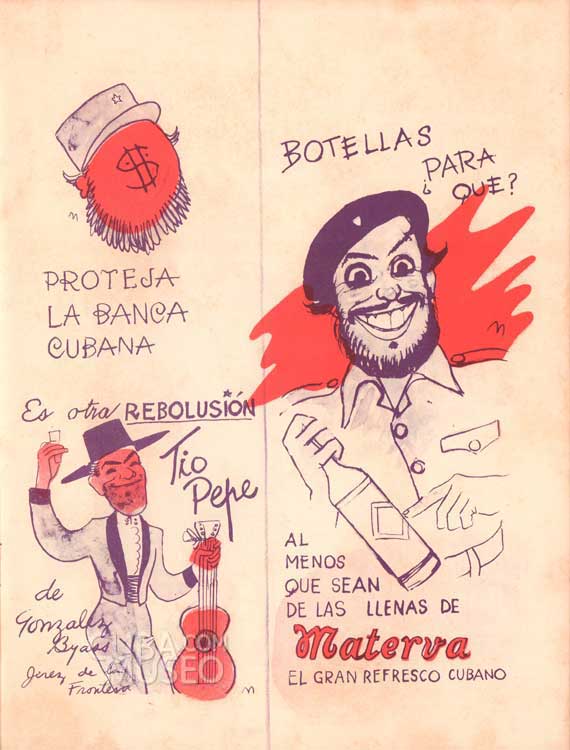 $
PROTEJA
LA BANCA
CUBANA
Es otra REBOLUSIÓN
Tio
Pepe
de
Gonzalez
Byass
Jerez de la
Frontera
CUBA.COM
MUSEO
BOTELLAS
PARA
¿ QUE?
AL
MENOS
QUE SEAN
DE LAS LLENAS DE
Materva
EL GRAN REFRESCO CUBANO